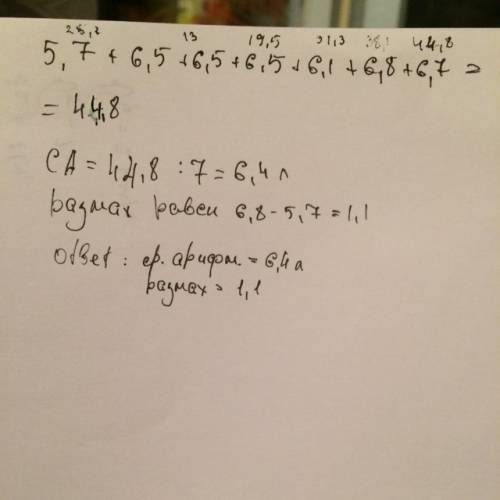 25,2 13 19,5 31,3 38,1 44,8
5,7 + 6,5 + 6,5 + 6,5 + 6,1 + 6,8 + 6,7 =
= 44,8
СА = 44,8 : 7 = 6,4 л
размах равен 6,8 - 5,7 = 1,1
ответ : ср. арифм. = 6,4 л
размах = 1,1